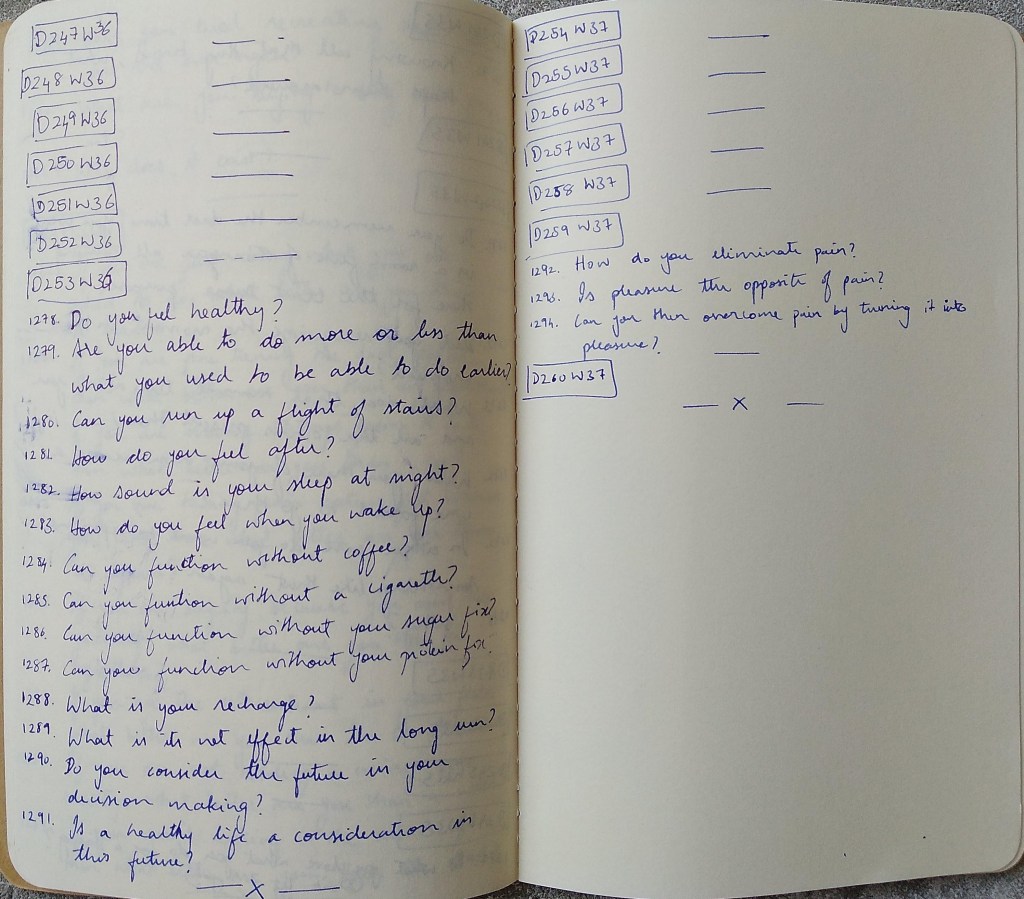 D247W36
D248W36
D249W36
D250W36
D251W36
D252W36
D253W36
1278. Do you feel healthy?
1279. Are you able to do more or less than
what you used to be able to do earlier?
1280. Can you run up a flight of stairs?
1281. How do you feel after?
1282. How sound is your sleep at night?
1283. How do you feel when you wake up?
1284. Can you function without coffee?
1285. Can you function without a cigarette?
1286. Can you function without your sugar fix?
1287. Can you function without your protein fix?
1288. What is your recharge?
1289. What is its net effect in the long run?
1290. Do you consider the future in your
decision making?
1291. Is a healthy life a consideration in
this future?
X
D254W37
D255W37
D256W37
D257W37
D258 W37
D259 W37
1292. How do you eliminate pain?
1293. Is pleasure the opposite of pain?
1294. Can you then overcome pain by turning it into
pleasure?
D260W37
X